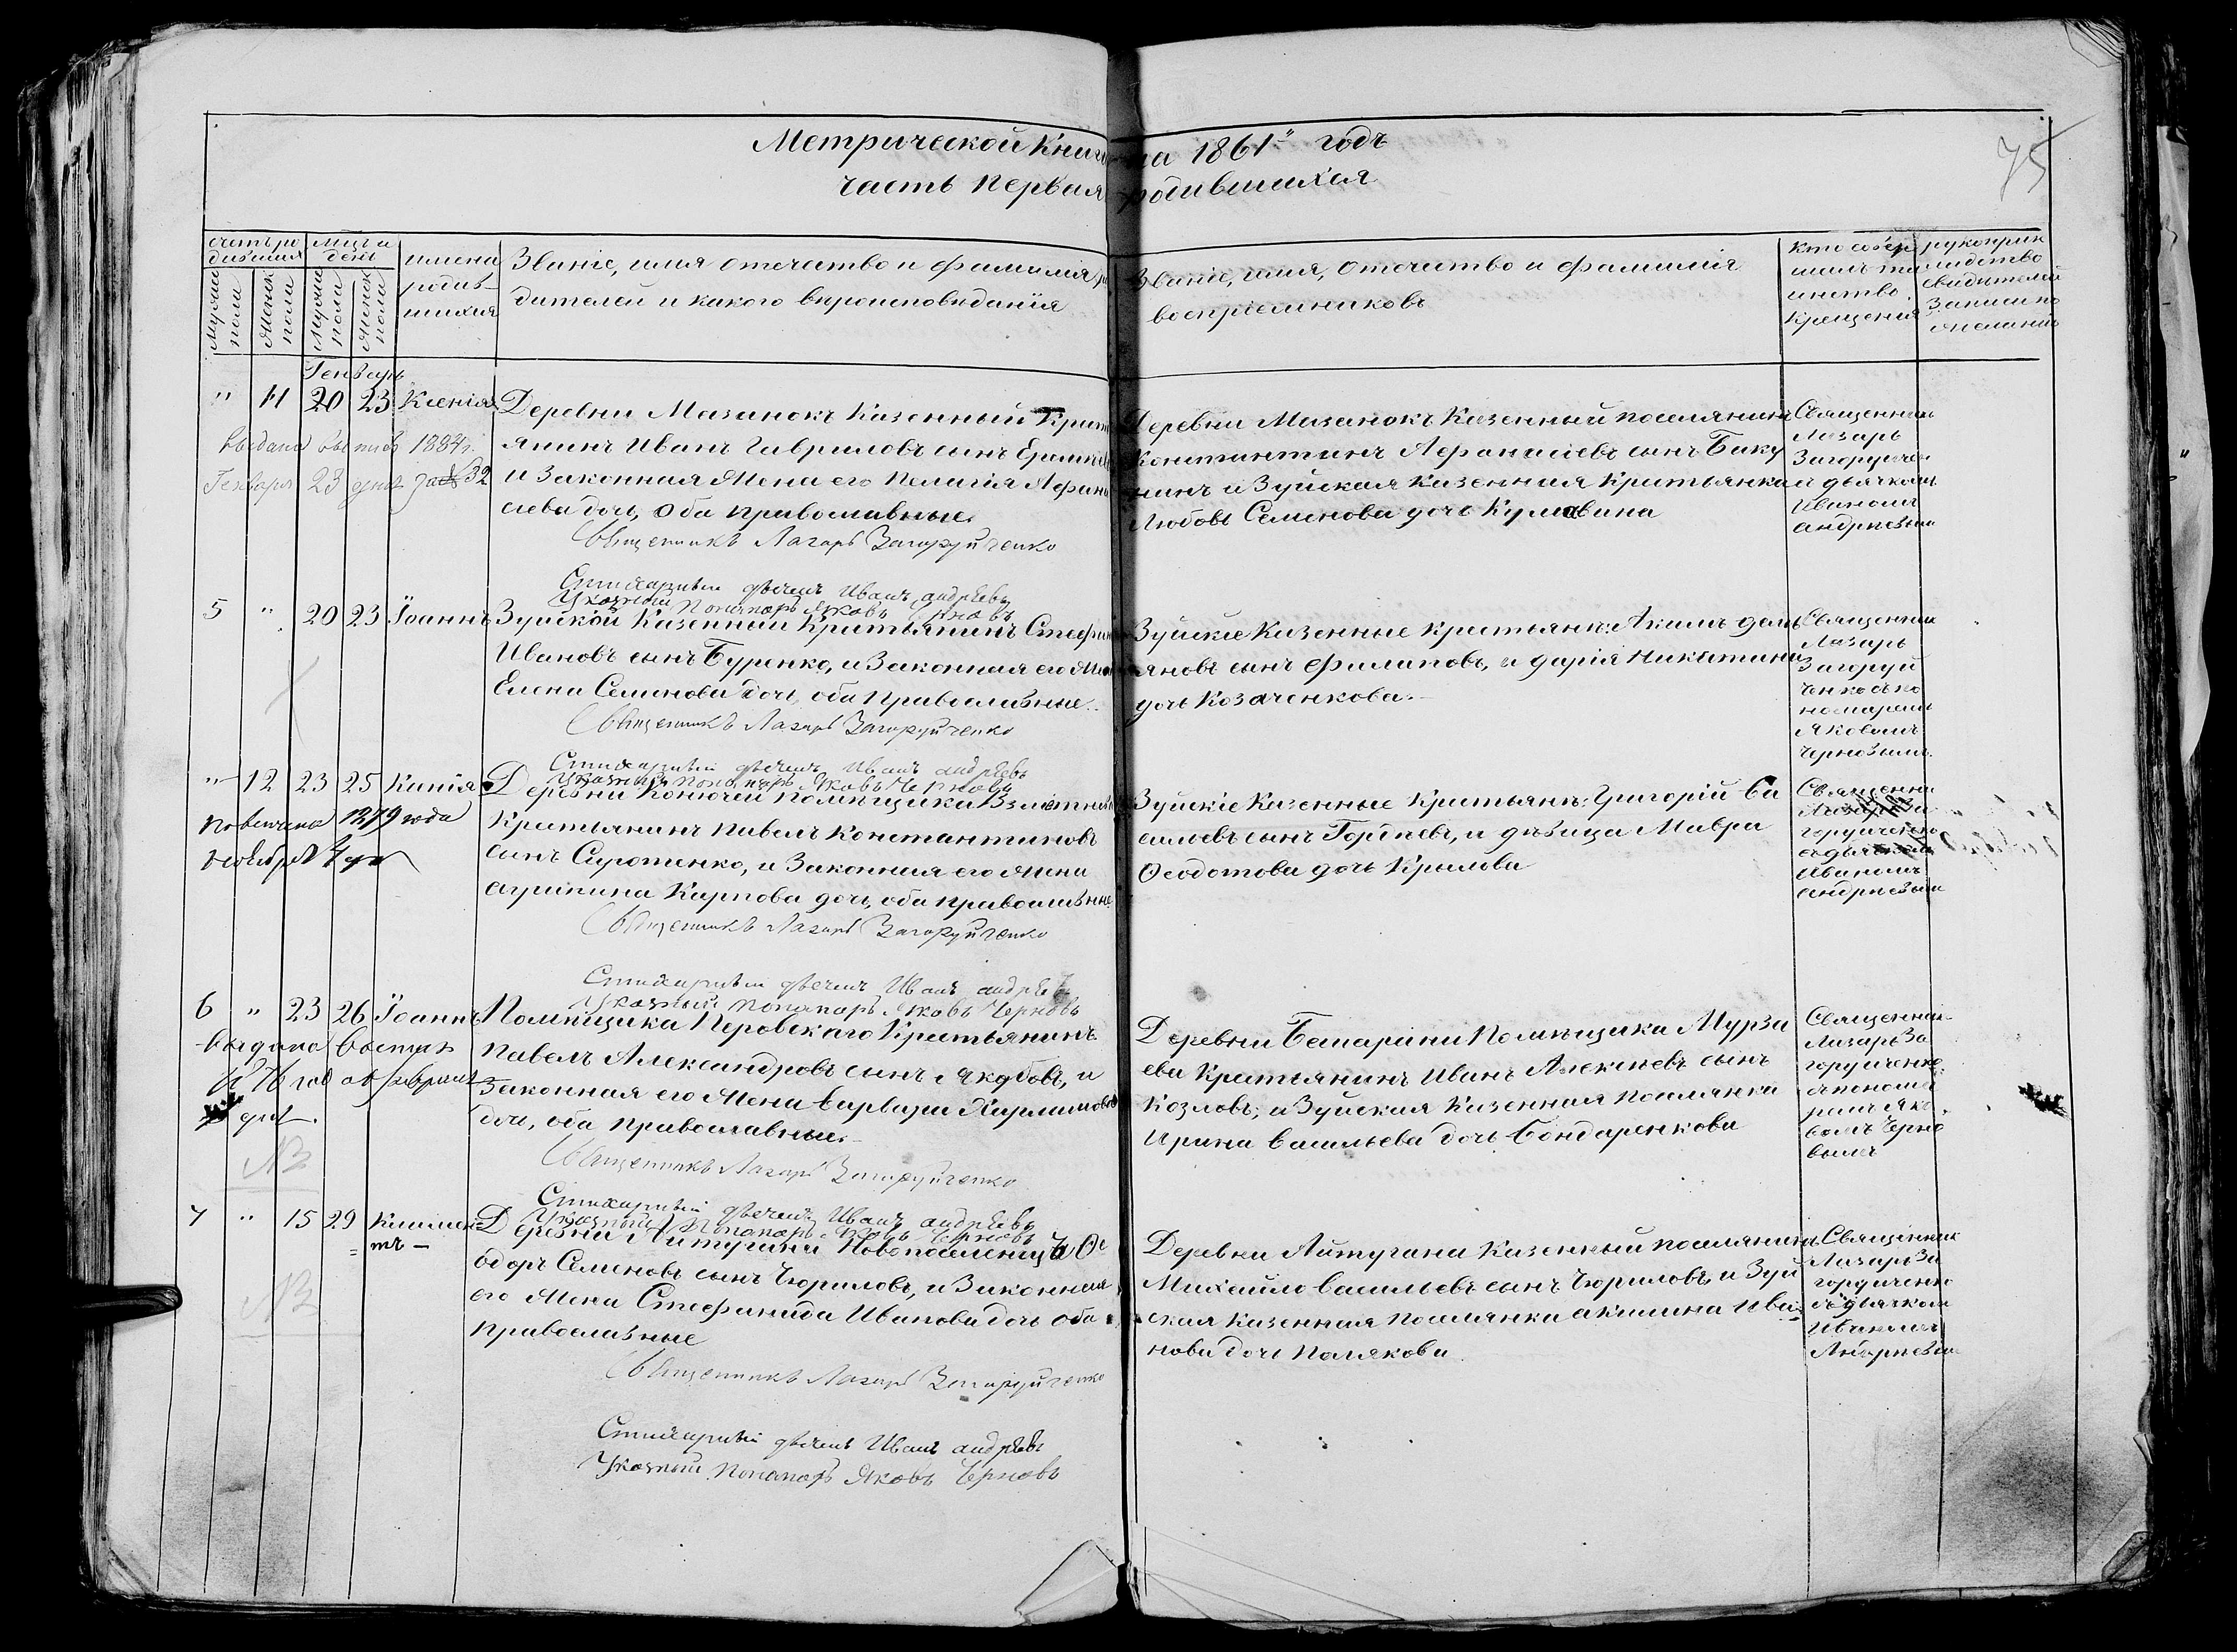 Метрической Книги на 1861" годъ
часть первая родившихся
75
счетъ ро
дившихся
мѣсъ и
день
имена
родив-
шихся
Званіе, имя отечество и фамилія ро
дителей и какого вѣроисповѣданія
Мужеска
пола
Женска
пола
Мужеска
пола
Женска
пола
Званіе, имя, Отечество и фамилія
воспріемниковъ
Кто совер
шилъ та
инство
Крещенія
рукоприк
ладство
свидѣтелей
записи по
желанію
Генварь
" 11 20 23 Ксенія
Деревни Мазанокъ Казенный Крест
янинъ Иванъ Гавриловъ сынъ
и Законная Жена его Пелагія Афана
сіева дочь, Оба православные.
Священникъ Лазарь Загоруйченко
Стихарный дьячекъ Иванъ андрѣевъ
Указный Пономарь Яковъ Черновъ
выдана выпись 1884г.
Генваря 23 дня за № 32
Деревни Мазанокъ Казенный поселянинъ
Константинъ Афанасіевъ сынъ Баку
нинъ и Зуйская Казенная Крестьянка
Любовь Семенова дочь Кулявина
Священникъ
Лазарь
Загоруйчен
и дьячкомъ
Иваномъ
андрѣевым
5 " 20 23 Іоаннъ
Зуйскій Казенный Крестьянинъ Стефан
Ивановъ сынъ Буренко, и Законная его Жена
Елена Семинова дочь, оба Православные.
Священникъ Лазарь Загоруйченко
Стихарный дьячекъ Иванъ андрѣевъ
Указный Пономарь Яковъ Черновъ
Зуйскіе Казенные Крестьяне: Акимъ Демь
яновъ сынъ Филиповъ, и дарія Никитина
дочь Козаченкова.
Священник
Лазарь
Загоруй
ченко съ по
номаремъ
Яковомъ
Черновымъ.
" 12 23 25 Ксенія
Деревни Помѣщика
Крестьянинъ Павелъ Константиновъ
сынъ Сиротенко, и Законная его Жена
агрипина Карпова дочь, оба православные
Священникъ Лазарь Загоруйченко
Стихарный дьячекъ Иванъ андрѣевъ
Указный Пономарь Яковъ Черновъ
Повенчана 1879 года
ноября 4 дня
Зуйскіе Казенные Крестьяне: Григорій Ва
сильевъ сынъ Гордѣевъ, и дѣвица Мавра
Ѳеодотова дочь Крылова
Священни
Лазарь За
горуйченко
съ дьячкомъ
Иваномъ
андрѣевым
6 " 23 26 Іоаннъ
Помѣщика Перовскаго Крестьянинъ
Павелъ Александровъ сынъ Якубовъ, и
Законная его Жена Варвара Харлампова
дочь, оба православные.
Священникъ Лазарь Загоруйченко
Стихарный дьячекъ Иванъ андрѣевъ
Указный Пономарь Яковъ Черновъ
выдана выпись
дня.
№
Деревни Бешарани Помѣщика Мурза
ева Крестьянинъ Иванъ Алексѣевъ сынъ
Козловъ, и Зуйская Казенная поселянка
Ирина Васильева дочь Бондаренкова
Священник
Лазарь За
горуйченко
рем Яко
вомъ Черно
вымъ
7 " 15 29 Климен
тъ
Деревни Айтугана Новопоселенецъ Ѳе
одоръ Семеновъ сынъ Чюриловъ, и Законная
его Жена Стефанида Иванова дочь оба
Православные
Священникъ Лазарь Загоруйченко
Стихарный дьячекъ Иванъ андрѣевъ
Указный Пономарь Яковъ Черновъ
№
Деревни Айтугана Казенный поселянинъ
Михайло Васильевъ сынъ Чюриловъ, и Зуй
ская Казенная поселянка акилина Ива
нова дочь Полякова
Священник
Лазарь За
горуйченко
съ дьячком
Иваномъ
Андрѣевым